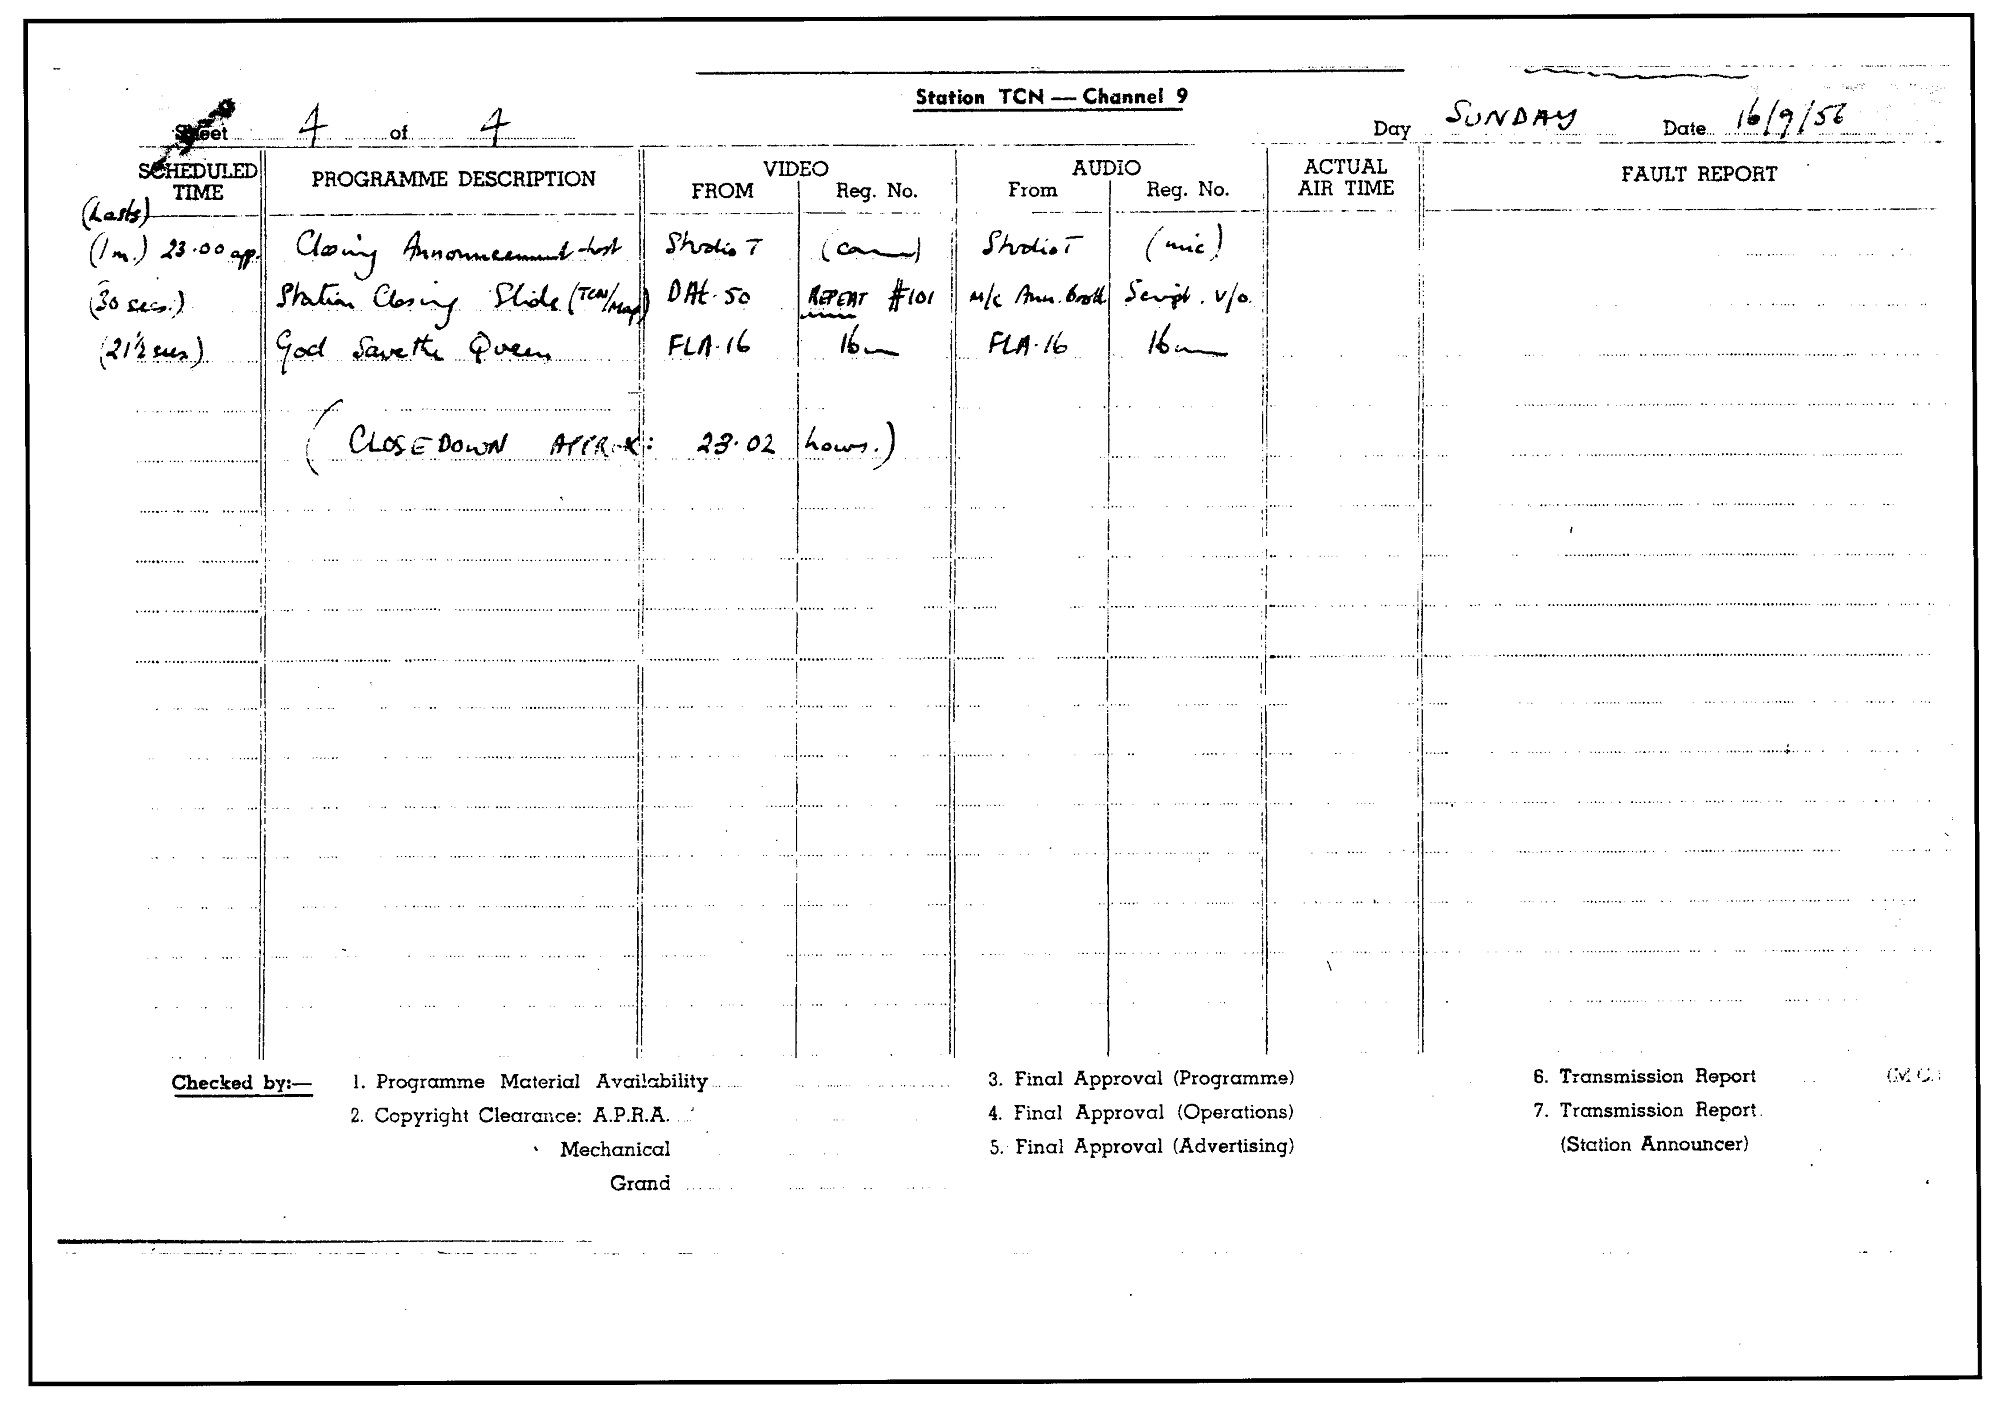 Station TCN — Channel 9
Sheet 4 of 4 Day SUNDAY Date 16/9/56
SCHEDULED TIME PROGRAMME DESCRIPTION VIDEO FROM Reg. No. AUDIO From Reg. No. ACTUAL AIR TIME FAULT REPORT
(Lasts)
(1 m.) 23.00 app. Closing Announcement - host Studio T (cam) Studio T (mic)
(30 secs.) Station Closing Slide (TCN/Map) DAL.50 REPEAT #101 M/C Ann. booth Script. V/O.
(21½ secs) God Save the Queen FLA.16 16m FLA.16 16m
(CLOSEDOWN APPROX: 23.02 hours.)
Checked by:— 1. Programme Material Availability 3. Final Approval (Programme) 6. Transmission Report (M.C.)
2. Copyright Clearance: A.P.R.A. 4. Final Approval (Operations) 7. Transmission Report
Mechanical 5. Final Approval (Advertising) (Station Announcer)
Grand